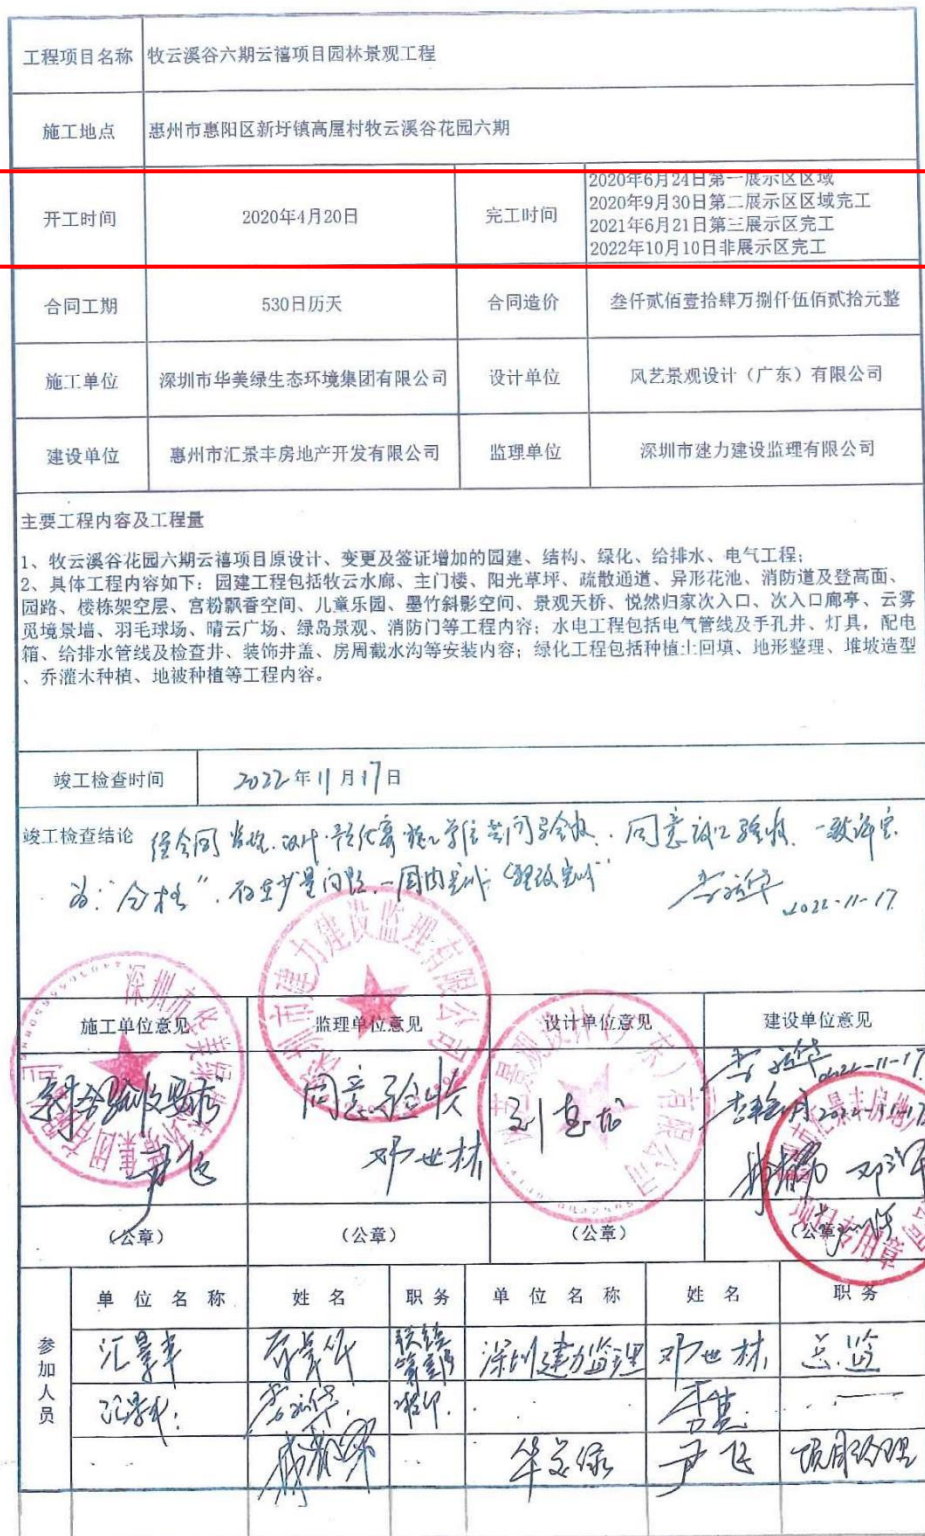 工程项目名称 牧云溪谷六期云禧项目园林景观工程
施工地点 惠州市惠阳区新圩镇高屋村牧云溪谷花园六期
开工时间 2020年4月20日 完工时间
2020年6月24日第一展示区区域
2020年9月30日第二展示区区域完工
2021年6月21日第三展示区完工
2022年10月10日非展示区完工
合同工期 530日历天 合同造价 叁仟贰佰壹拾肆万捌仟伍佰贰拾元整
施工单位 深圳市华美绿生态环境集团有限公司 设计单位 风艺景观设计（广东）有限公司
建设单位 惠州市汇景丰房地产开发有限公司 监理单位 深圳市建力建设监理有限公司
主要工程内容及工程量
1、牧云溪谷花园六期云禧项目原设计、变更及签证增加的园建、结构、绿化、给排水、电气工程；
2、具体工程内容如下：园建工程包括牧云水廊、主门楼、阳光草坪、疏散通道、异形花池、消防道及登高面、
园路、楼栋架空层、宫粉飘香空间、儿童乐园、墨竹斜影空间、景观天桥、悦然归家次入口、次入口廊亭、云雾
觅境景墙、羽毛球场、晴云广场、绿岛景观、消防门等工程内容；水电工程包括电气管线及手孔井、灯具，配电
箱、给排水管线及检查井、装饰井盖、房周截水沟等安装内容；绿化工程包括种植土回填、地形整理、堆坡造型
、乔灌木种植、地被种植等工程内容。
竣工检查时间 2022年11月17日
竣工检查结论 同意竣工验收 一致评定
为：“合格”．存在少量问题 一周内 “整改完成”
2022-11-17
施工单位意见 监理单位意见 设计单位意见 建设单位意见
2022-11-17
同意验收 2022-11-17
邓世林
尹飞
（公章） （公章） （公章） （公章）
深圳市建力建设监理有限公司
项目专用章
参加人员
单位名称 姓名 职务 单位名称 姓名 职务
汇景丰 深圳建力监理 邓世林 总监
汇景丰
华美绿 尹飞 项目经理